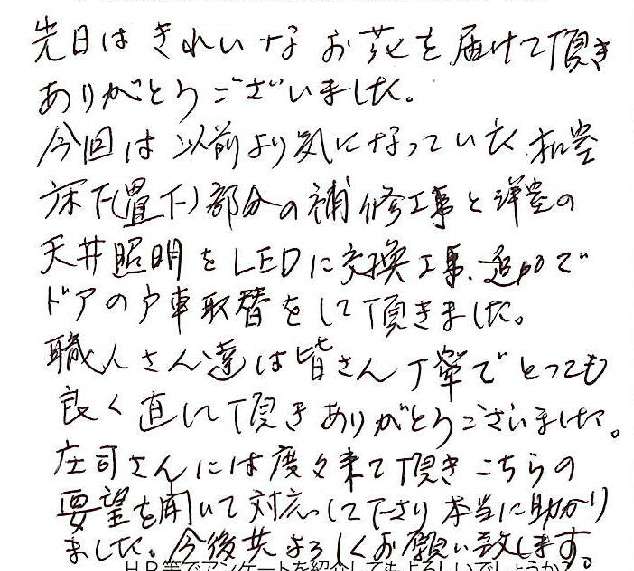 先日はきれいなお花を届けて頂き
ありがとうございました。
今回は以前より気になっていた和室
床下(畳下)部分の補修工事と洋室の
天井照明をLEDに交換工事、追加で
ドアの戸車取替をして頂きました。
職人さん達は皆さん丁寧でとっても
良く直して頂きありがとうございました。
庄司さんには度々来て頂きこちらの
要望を聞いて対応して下さり本当に助かり
ました。今後共よろしくお願い致します。
HP等でアンケートを紹介してもよろしいでしょうか